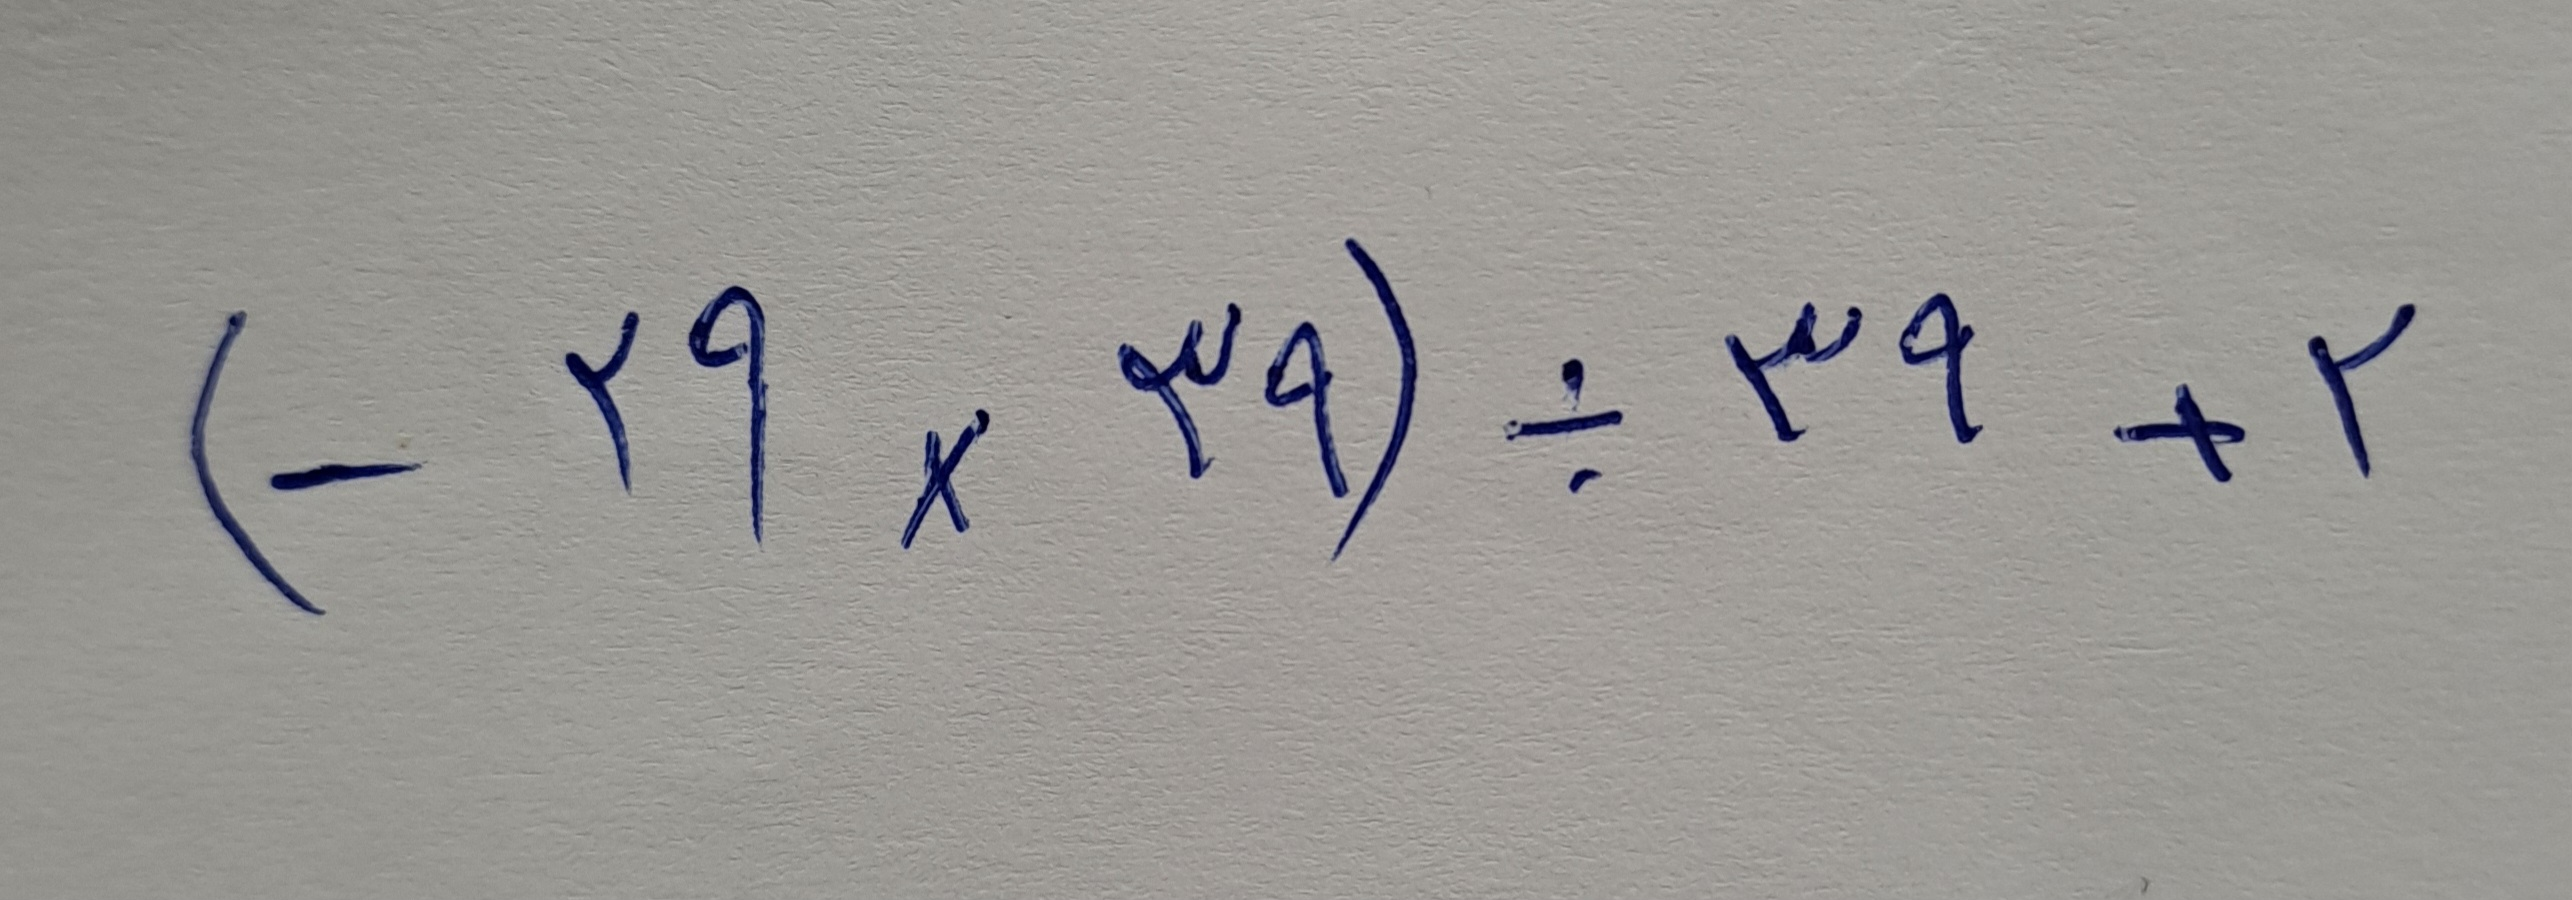 (- ۲۹ × ۳۹) ÷ ۳۹ + ۲